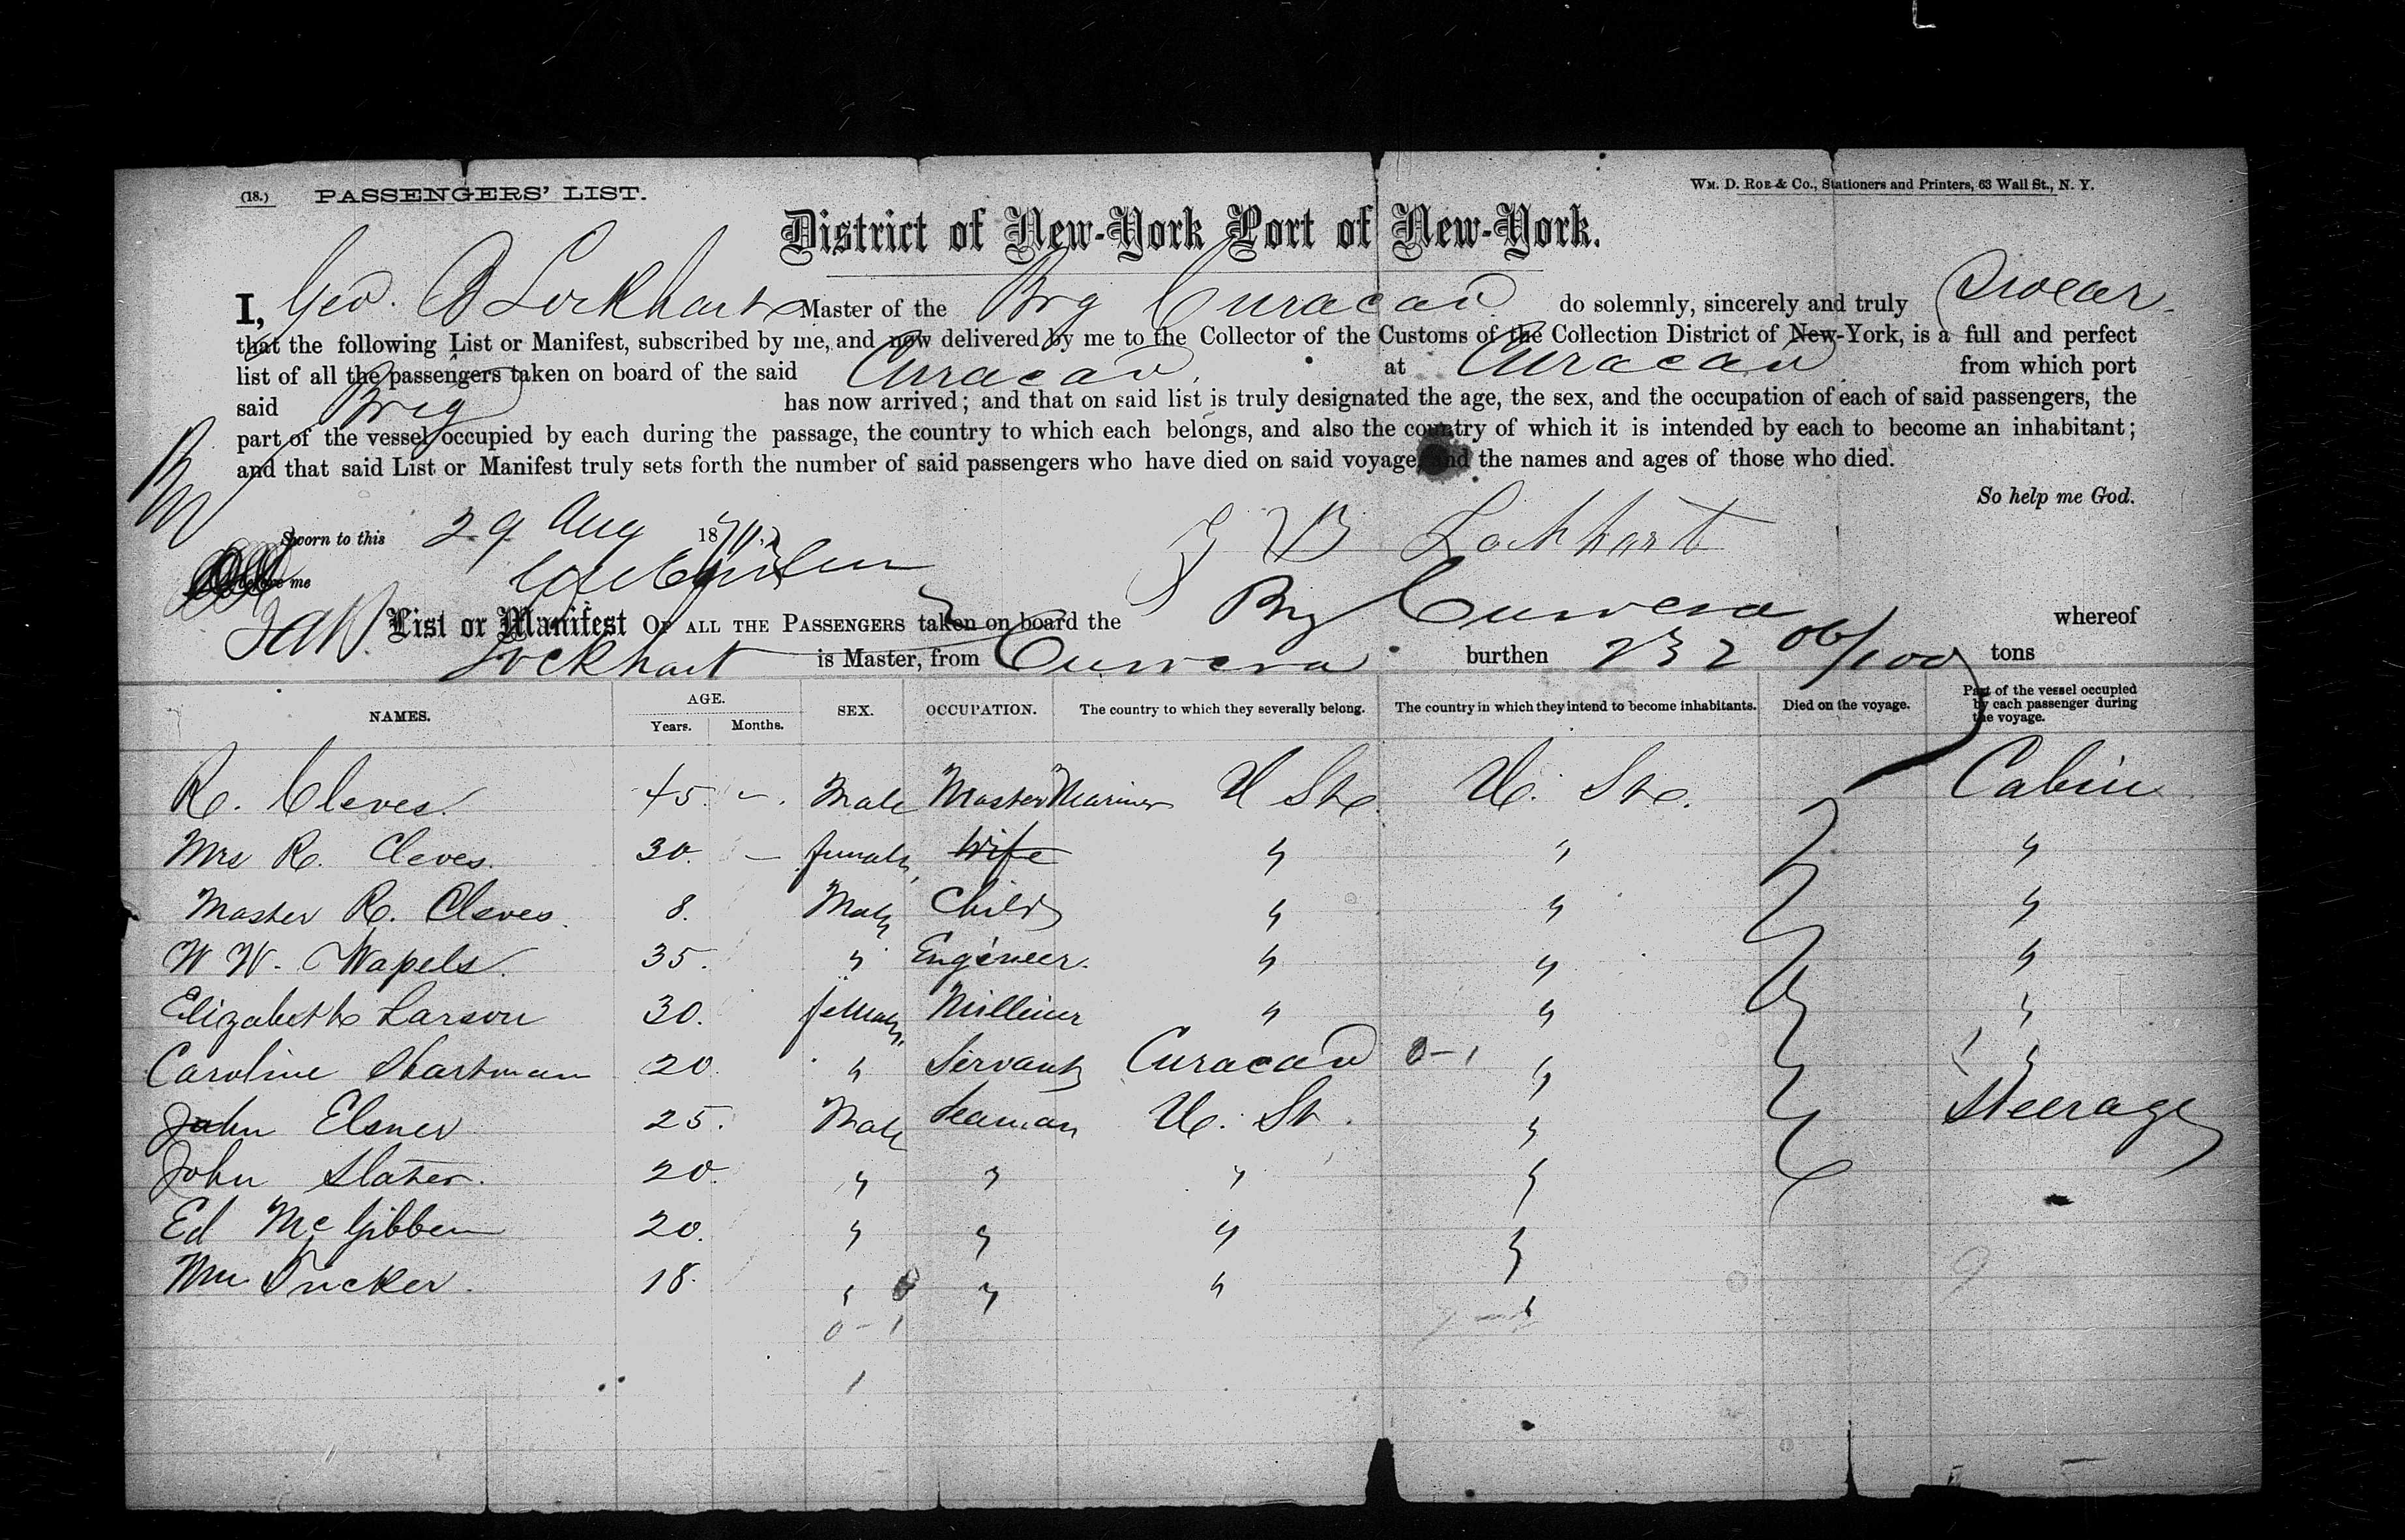 (18.) PASSENGERS' LIST. WM. D. ROE & Co., Stationers and Printers, 63 Wall St., N. Y.
District of New-York Port of New-York.
I, Geo. B Lockhart Master of the Brg Curacao do solemnly, sincerely and truly Swear
that the following List or Manifest, subscribed by me, and now delivered by me to the Collector of the Customs of the Collection District of New-York, is a full and perfect
list of all the passengers taken on board of the said Curacao at Curacao from which port
said Brig has now arrived; and that on said list is truly designated the age, the sex, and the occupation of each of said passengers, the
part of the vessel occupied by each during the passage, the country to which each belongs, and also the country of which it is intended by each to become an inhabitant;
and that said List or Manifest truly sets forth the number of said passengers who have died on said voyage, and the names and ages of those who died.
So help me God.
Sworn to this 29 Aug 187
before me
G B Lockhart
List or Manifest OF ALL THE PASSENGERS taken on board the Brg whereof
Lockhart is Master, from burthen 232 06/100 tons
NAMES. AGE. Years. Months. SEX. OCCUPATION. The country to which they severally belong. The country in which they intend to become inhabitants. Died on the voyage. Part of the vessel occupied by each passenger during the voyage.
R. Cleves. 45. -. Male Master Mariner U Sts. U. Sts. Cabin
Mrs R. Cleves. 30. - female Wife " " "
Master R. Cleves. 8. Male Child " " "
W W. Wapels. 35. " Engineer. " " "
Elizabeth Larson 30. female Milliner " " "
Caroline Hartman 20. " Servant Curacao 0-1 " "
John Elsner 25. Male Seaman U. St. " Steerage
John Slater. 20. " " " "
Ed McGibben 20. " " " "
Wm Tucker. 18. " " " "
0-1
1